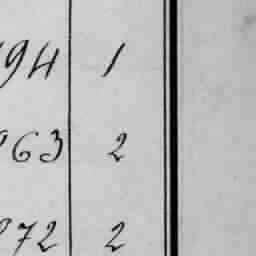 94 1
963 2
972 2